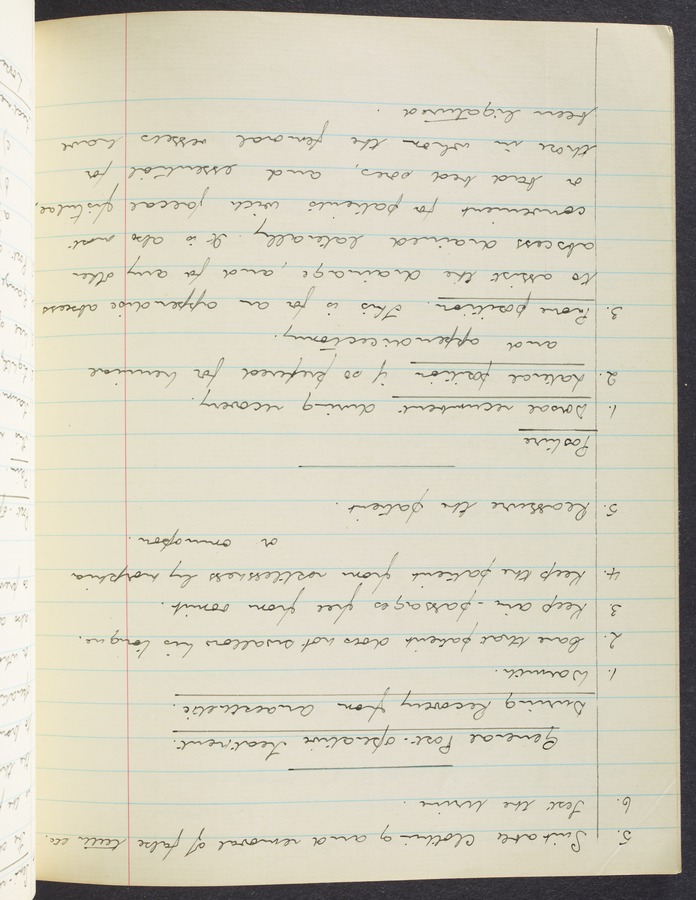 5. Suitable Clothing and removal of false teeth etc.
6. Test the urine.
General Post-operative Treatment.
During Recovery from Anaesthetic.
1. Warmth.
2. Care that patient does not swallow his tongue.
3. Keep air-passages free from vomit.
4. Keep the patient from restlessness by morphia
or omnopon.
5. Reassure the patient.
Posture
1. Dorsal recumbent during recovery.
2. Lateral position if so prefered for herniae
and appendicectomy.
3. Prone position. This is for an appendix abscess
to assist the drainage, and for any other
abscess drained laterally. It is also most
convenient for patients with faecal fistulae,
or bad bed sores, and essential for
those in whom the femoral vessels have
been ligatured.